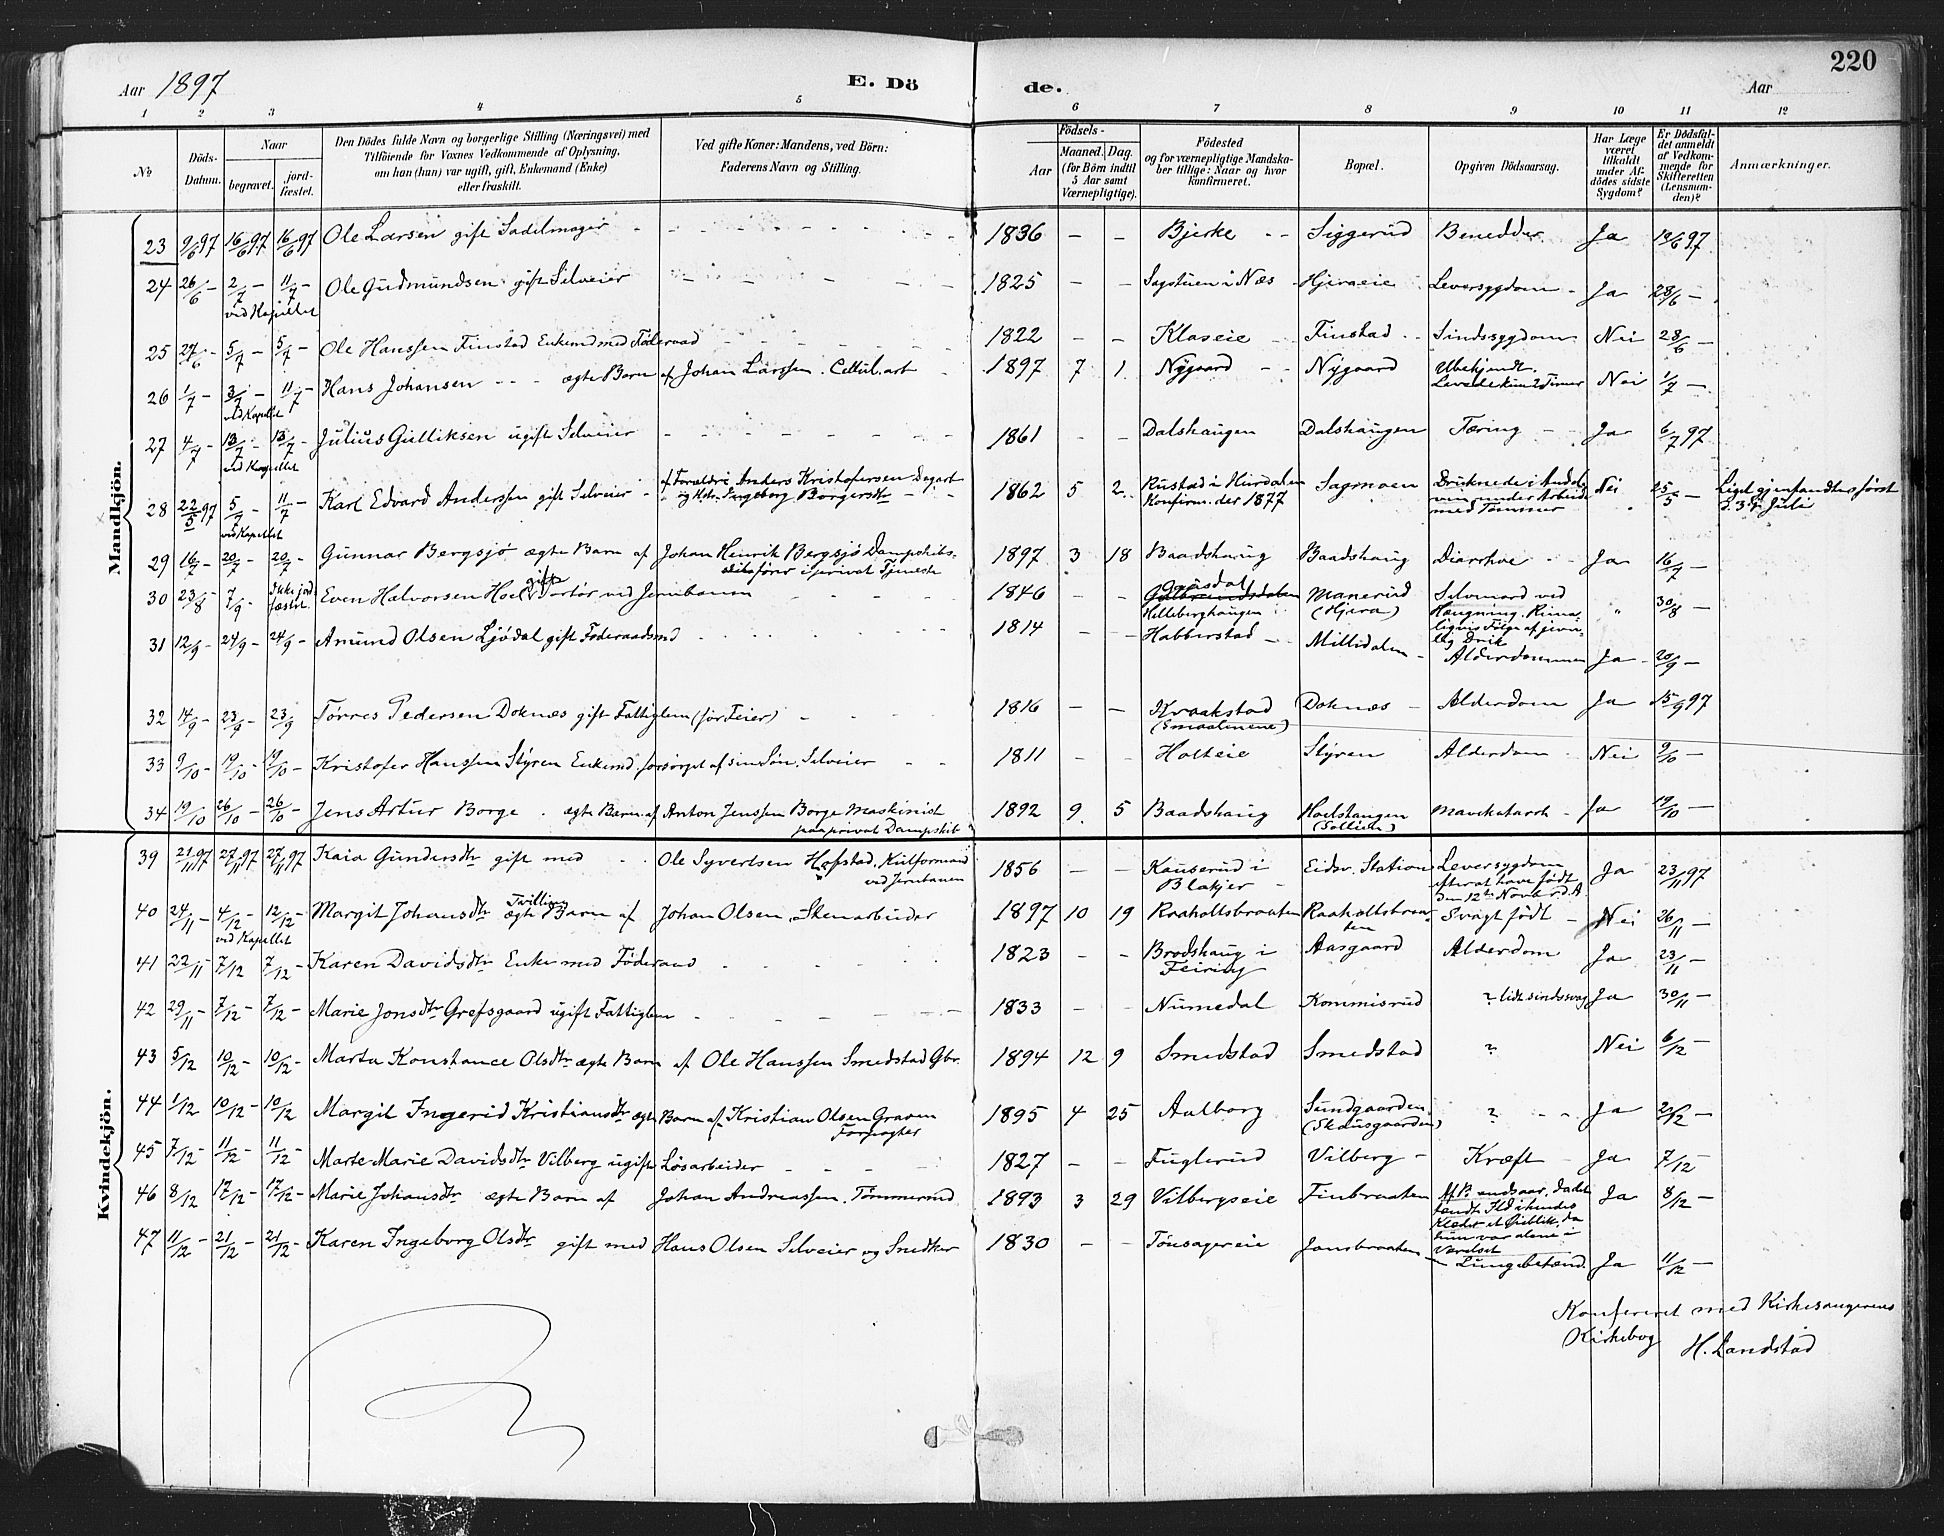 220
Aar 1897
E. Dö de.
Aar
1 2 3 4 5 6 7 8 9 10 11 12
No
Döds-Datum.
Naar
begravet.
jord-fæstet.
Den Dödes fulde Navn og borgerlige Stilling (Næringsvei) med
Tilföiende for Voxnes Vedkommende af Oplysning,
om han (hun) var ugift, gift, Enkemand (Enke)
eller fraskilt.
Ved gifte Koner: Mandens, ved Börn:
Faderens Navn og Stilling.
Födsels-
Aar
Maaned. Dag.
(for Börn indtil
5 Aar samt
Værnepligtige).
Födested
og for værnepligtige Mandska-
ber tillige: Naar og hvor
konfirmeret.
Bopæl.
Opgiven Dödsaarsag.
Har Læge
været
tilkaldt
under Af-
dödes sidste
Sygdom?
Er Dödsfal-
det anmeldt
af Vedkom-
mende for
Skifteretten
(Lensman-
den)?
Anmærkninger.
Mandkjön.
23 9/6 97 16/6 97 16/6 97 Ole Larsen gift Sadelmager - - 1836 - - Bjerke - - Siggerud Benedder Ja 12/6 97
24 26/6 - 2/7 - 11/7 - Ole Gudmundsen gift Selveier - - 1825 - - Sagstuen i Næs Hjeraeie Leversygdom - Ja 28/6 -
ved Kapellet
25 27/6 - 5/7 - 5/7 - Ole Hanssen Finstad Enkemd med Föderaad 1822 - - Klaseie - Finstad - Sindssygdom Nei 28/6 -
26 1/7 - 3/7 - 11/7 - Hans Johansen - - - ægte Barn af Johan Larssen. Cellul.arb 1897 7 1 Nygaard - - Nygaard Ubekjendt.
Levede kun 2 Timer Nei 1/7 -
ved Kapellet
27 4/7 - 13/7 - 13/7 - Julius Gulliksen ugift Selveier - - 1861 - - Dalshaugen Dalshaugen Tæring - - Ja 6/7 97
ved Kapellet
28 22/5 97 5/7 - 11/7 - Karl Edvard Anderssen gift Selveier - af Forældre Anders Kristofersen Dagarb
og Hstr. Ingeborg Borgersdtr - - 1862 5 2 Rustad i Hurdalen
Konfirm. der 1877 Sagmoen Druknede i Andels-
ven under Arbeide
med Tömmer Nei 25/5 - Liget gjenfandtes först
d. 3d Juli
ved Kapellet
29 16/7 - 20/7 - 20/7 - Gunnar Bergsjö ægte Barn af Johan Henrik Bergsjö Dampskibs-
förer i privat Tjeneste 1897 3 18 Baadshaug Baadshaug Diarrhoe - - Ja 16/7 -
30 23/8 - 7/9 - Ikke jord-
fæstet. Even Halvorsen Hoel gift Portör ved Jernbanen 1846 - - Gudbrandsdalen
Helleberghaugen Manerud
(Hjera) Selvmord ved
Hængning. Rime-
ligvis Fölge af jevn-
lig Drik " 30/8 -
31 12/9 - 24/9 - 24/9 - Amund Olsen Ljödal gift Föderaadsmd - - 1814 - - Habberstad - - Millidalen - Alderdommen Ja - 20/9 -
32 14/9 - 23/9 - 23/9 Törres Pedersen Doknæs gift Fattiglem (för Feier) - - 1816 - - Kraakstad
(Smaalenene) Doknæs - Alderdom Ja 15/9 97
33 9/10 - 19/10 - 19/10 - Kristofer Hanssen Styren Enkemd. forsörget af sin Sön. Selveier - - 1811 - - Holteie Styren Alderdom - Nei 9/10 -
34 19/10 26/10 - 26/10 - Jens Artur Borge . ægte Barn af Anton Jenssen Borge Maskinist
paa privat Dampskib 1892 9 5 Baadshaug Hoelshaugen
(Sollien) Mavekatarrh - Ja 19/10 -
Kvindekjön.
39 21/11 97 27/11 97 27/11 97 Kaia Gundersdtr gift med - - Ole Syvertsen Hofstad. Kulformand
ved Jernbanen 1856 - - Kauserud i
Blakjer - Eidsv. Station Leversygdom
efter at have födt
den 12te Novbr d. A Ja 23/11 97
40 24/11 - 4/12 - 12/12 - Margit Johansdtr Tvilling ægte Barn af Johan Olsen, Stenarbeider 1897 10 19 Raaholtsbraaten Raaholtsbraa-
ten Svagt födt - Nei 26/11 -
ved Kapellet
41 22/11 7/12 7/12 - Karen Davidsdtr Enke med Föderaad - - 1823 - - Brodshaug i
Feiring Aasgaard Alderdom Ja 23/11 -
42 29/11 - 7/12 - 7/12 - Marie Jonsdtr Grefsgaard ugift Fattiglem - - 1833 - - Numedal Kommisrud ? lidt sindssvag Ja 30/11 -
43 5/12 10/12 - 10/12 - Marta Konstance Olsdtr ægte Barn af Ole Hanssen Smedstad Gbr. 1894 12 9 Smedstad Smedstad ? Nei 6/12 -
44 1/12 10/12 - 10/12 Margit Ingerid Kristiansdtr ægte Barn af Kristian Olsen Graven
Forpagter 1895 4 25 Aalborg Sundgaarden
(Skausgaarden) ? - - Ja 2/12 -
45 7/12 - 11/12 - 11/12 - Marte Marie Davidsdtr Vilberg ugift Lösarbeider - - 1827 - - Fuglerud Vilberg - Kræft - Ja 7/12 -
46 8/12 17/12 - 17/12 - Marie Johansdtr ægte Barn af Johan Andreassen. Tömmermd. 1893 3 29 Vilbergseie Finbraaten
tændt Ild i hendes
Klæder et Öieblik, da
hun var alene i
Værelset Ja 8/12 -
47 11/12 - 21/12 - 21/12 - Karen Ingeborg Olsdtr gift med Hans Olsen Selveier og Snedker 1830 - - Tönsagereie Jonsbraaten - Lungebetænd. Ja 11/12 -
Konfereret med Kirkesangerens
Kirkebog H. Landstad